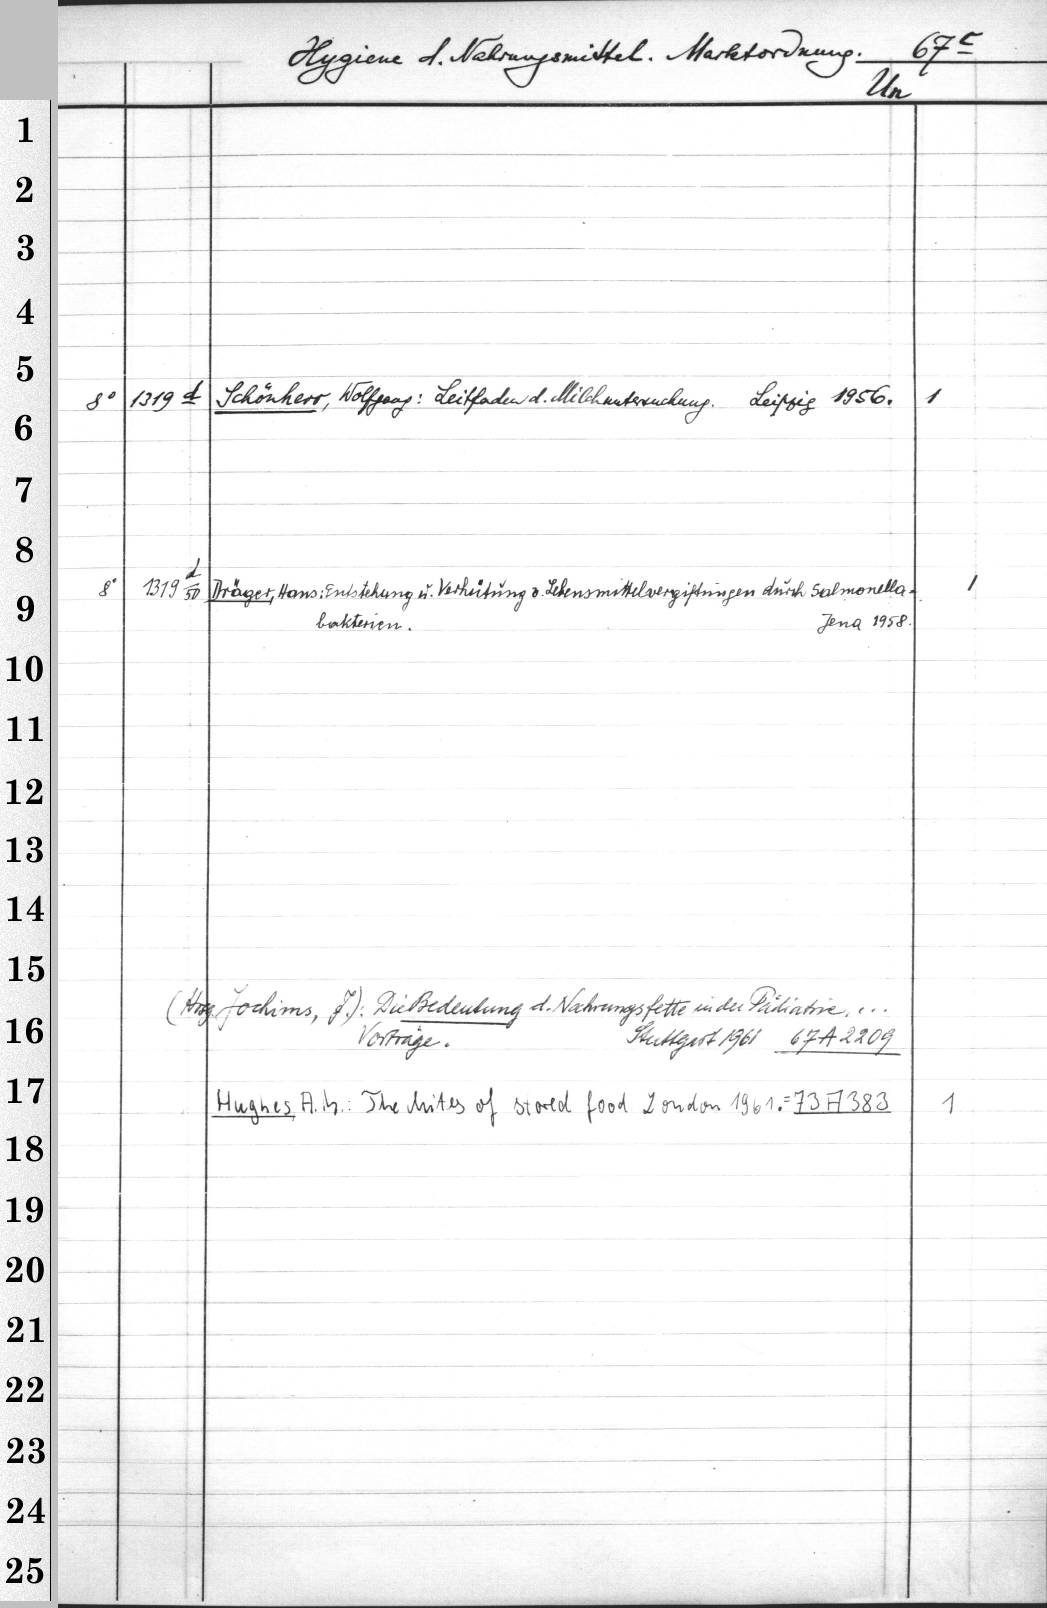 Hygiene d. Nahrungsmittel. Marktordnung. 67c
Un
1
2
3
4
5
8° 1319 d Schönherr, Wolfgang: Leitfaden d. Milchuntersuchung. Leipzig 1956. 1
6
7
8
8° 1319 d/50 Dräger, Hans: Entstehung u. Verhütung v. Lebensmittelvergiftungen durch Salmonella- 1
9
bakterien. Jena 1958.
10
11
12
13
14
15
(Hrsg. Jochims, J.): Die Bedeutung d. Nahrungsfette in der Pädiatrie. ...
16
Vorträge. Stuttgart 1961 67 A 2209
17
Hughes, A. M.: The Mites of stored food London 1961. = 73 A 383 1
18
19
20
21
22
23
24
25